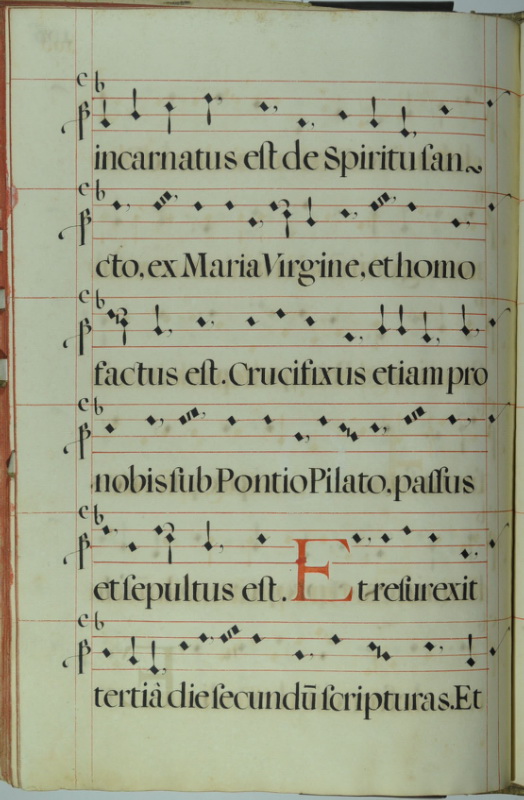 incarnatus eſt de Spiritu ſan~
cto, ex Maria Virgine, et homo
factus eſt. Crucifixus etiam pro
nobis ſub Pontio Pilato, paſſus
et ſepultus eſt. Et reſurexit
tertiâ die ſecundū ſcripturas. Et